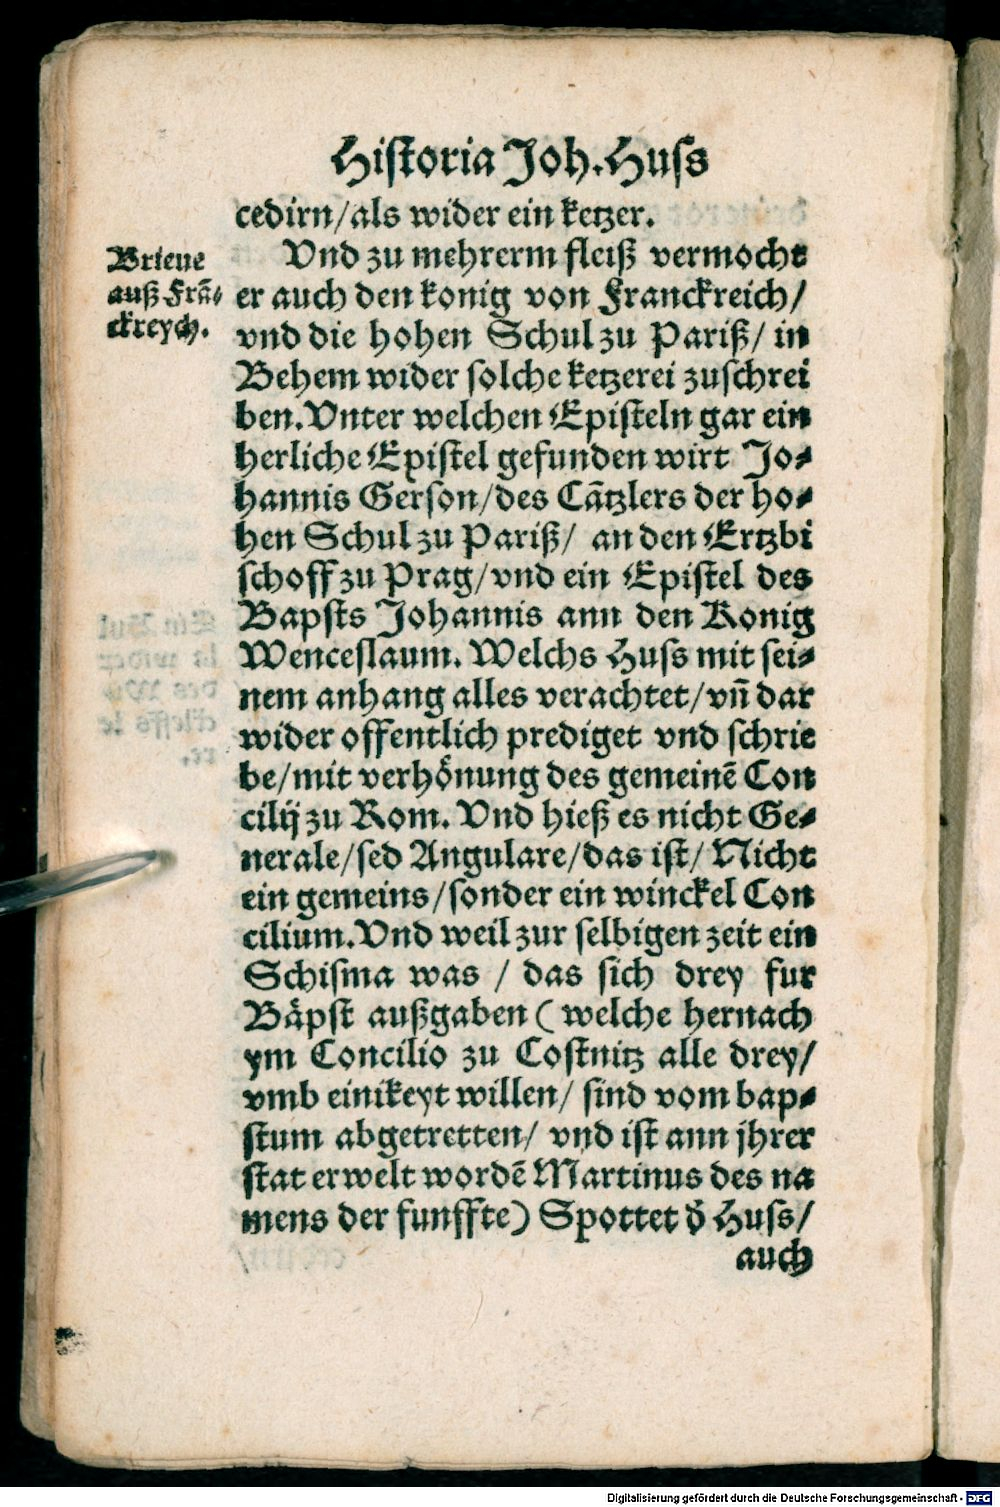 Historia Joh. Huss
cedirn/als wider ein ketzer.
Vnd zu mehrerm fleiß vermocht
er auch den konig von Franckreich/
vnd die hohen Schul zu Pariß/ in
Behem wider solche ketzerei zuschrei
ben. Vnter welchen Episteln gar ein
herliche Epistel gefunden wirt Jo-
hannis Gerson/des Cãtzlers der ho-
hen Schul zu Pariß/ an den Ertzbi
schoff zu Prag/vnd ein Epistel des
Bapsts Johannis ann den Konig
Wenceslaum. Welchs Huss mit sei-
nem anhang alles verachtet/vñ dar
wider offentlich prediget vnd schrie
be/mit verhönung des gemeinẽ Con
cilij zu Rom. Vnd hieß es nicht Ge-
nerale/sed Angulare/das ist/ Nicht
ein gemeins/sonder ein winckel Con
cilium. Vnd weil zur selbigen zeit ein
Schisma was / das sich drey fur
Bäpst außgaben ( welche hernach
ym Concilio zu Costnitz alle drey/
vmb einikeyt willen/ sind vom bap-
stum abgetretten/ vnd ist ann jhrer
stat erwelt wordẽ Martinus des na
mens der funffte) Spottet d̕ Huss/
auch
Brieue
auß Frã-
ckreych.
Digitalisierung gefördert durch die Deutsche Forschungsgemeinschaft - DFG